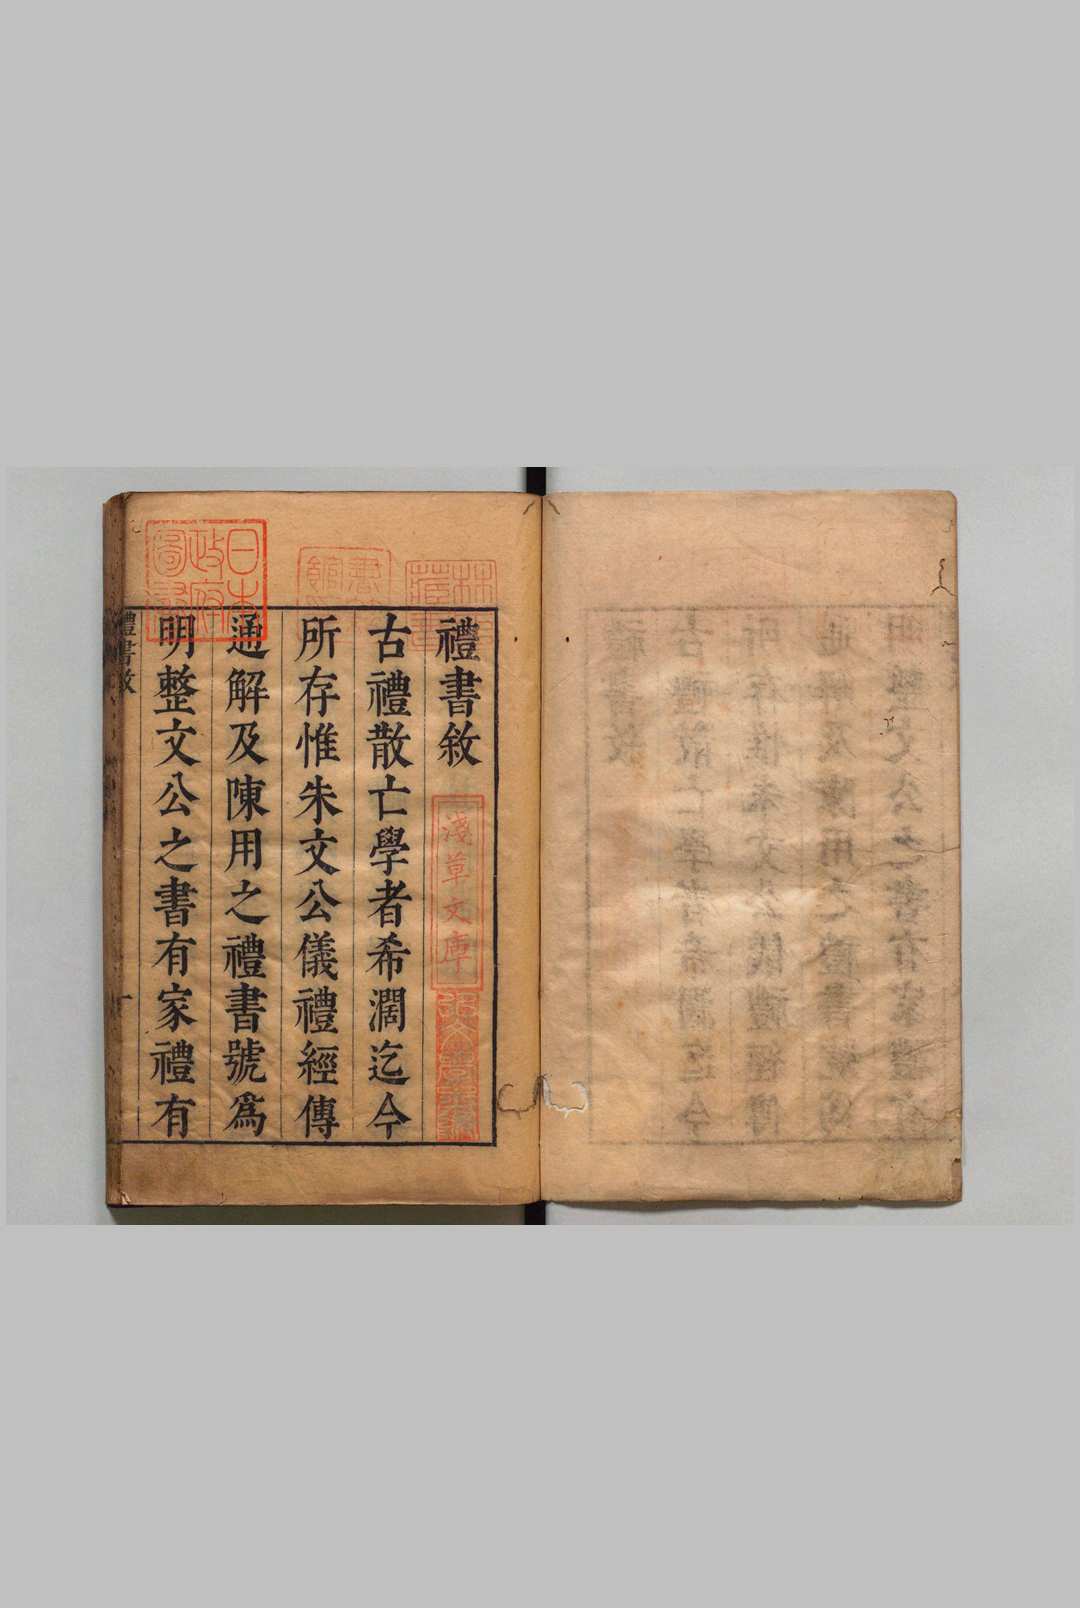 禮書敘
古禮散亡學者希濶迄今
所存惟朱文公儀禮經傳
通解及陳用之禮書號為
明整文公之書有家禮有
禮書敘
一
日本
政府
圖書
淺草文庫
林
藏書